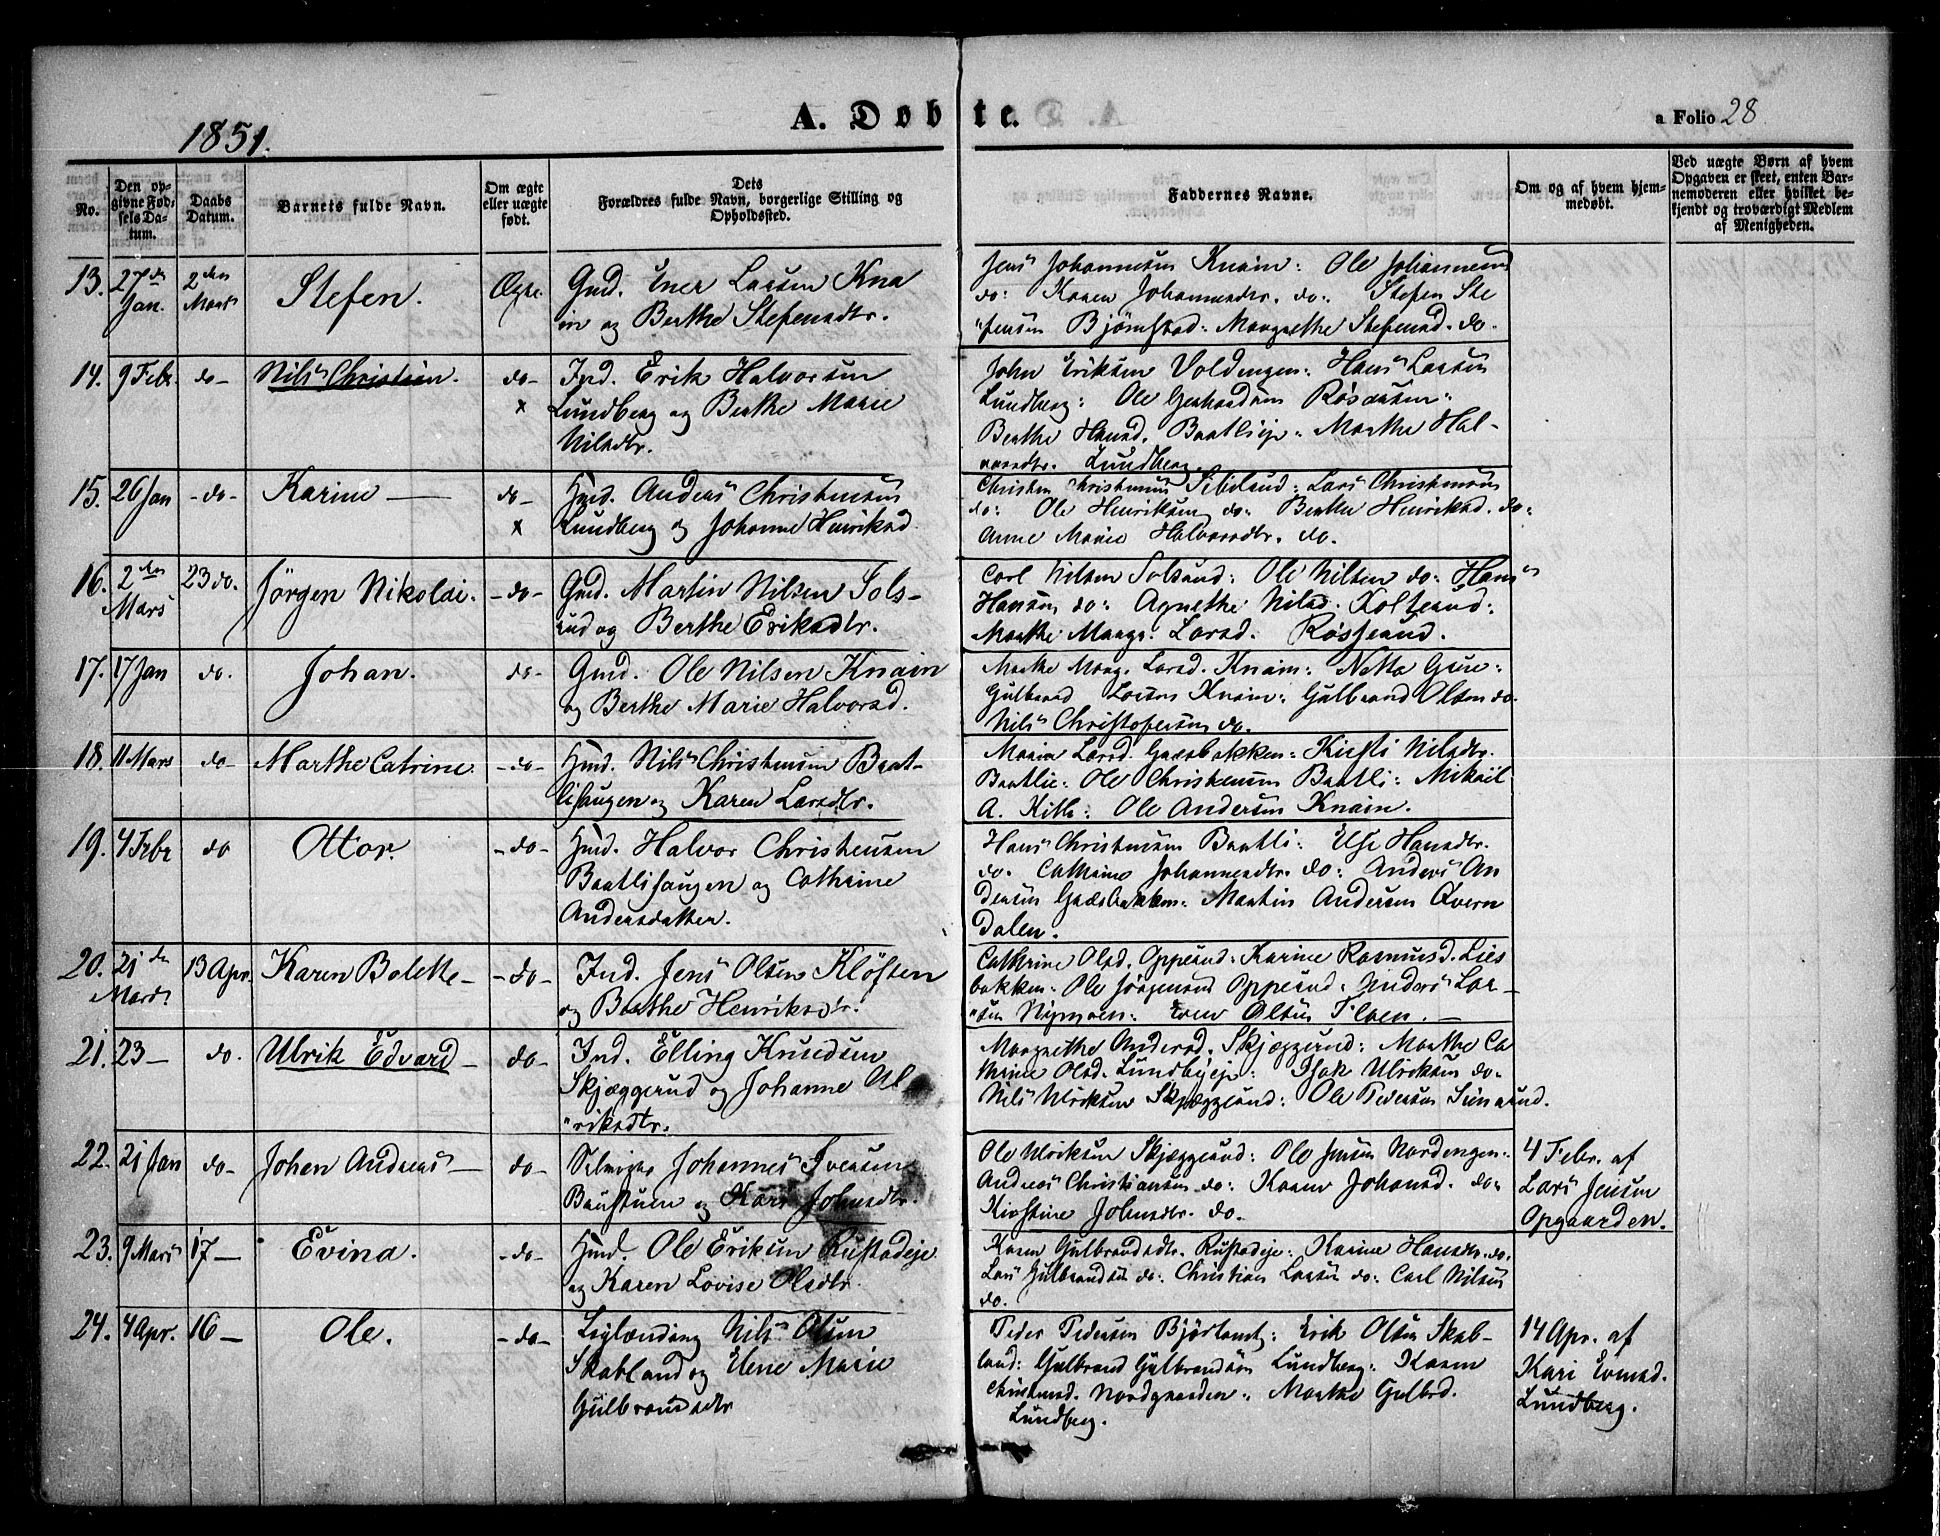 1851.
A. Døbte.
a Folio 28
No.
Den opgivne Fødsels Datum.
Daabs Datum.
Barnets fulde Navn.
Om ægte eller uægte født.
Dets Forældres fulde Navn, borgerlige Stilling og Opholdsted.
Faddernes Navne.
Om og af hvem hjemmedøbt.
Ved uægte Børn af hvem Opgaven er skeet, enten Barnemoderen eller hvilket bekjendt og troværdigt Medlem af Menigheden.
13. 27de Jan. 2den Mars Stefen. Ægte.
Gmd. Iver Larsen Kna
in og Berthe Stefensdtr.
Jens Johannesen Knain: Ole Johannesen
do: Karen Johannesdtr. do: Stefen Ste
"fensen Bjørnstad: Margrethe Stefensd. do.
14. 9 Febr. do- Nils Christian. do- x
Ind. Erik Halvorsen
Lundberg og Berthe Marie
Nilsdtr.
John Eriksen Voldengen: Hans Larsen
Lundberg: Ole
Berthe Hansd. Baatlieje: Marthe Hal-
vorsdtr. Lundberg.
15. 26 Jan -do- Karine - do- x
Hmd. Anders Christensen
Lundberg og Johanne Henriksd.
Christen Christensen: Lars Christensen
do: Ole Henriksen do: Berthe Henriksd. do:
Anne Marie Halvorsdtr. do.
16. 2den Mars 23 do. Jörgen Nikolai. -do-
Gmd. Martin Nilsen Sols-
rud og Berthe Eriksdtr.
Carl Nilsen Solsrud: Ole Nilsen do: Hans
Hansen do: Agnethe Nilsd. Kolsrud:
Marthe Marg. Larsd. Røsserud.
17. 17 Jan do. Johan. do-
Gmd. Ole Nilsen Knain
og Berthe Marie Halvorsd.
Marthe Marg. Larsd. Knain:
Gulbrand Larsen Knain: Gulbrand Olsen do.
Nils Christofersen do.
18. 11 Mars do- Marthe Catrine. -do-
Hmd. Nils Christensen Baat-
lihaugen og Karen Larsdtr.
Maria Larsd. Gaasbakken: Kirsti Nilsdtr.
Baatlie: Ole Christensen Baatli: Mikail
A. Kitle: Ole Andersen Knain.
19. 4 Febr do Ottor. -do-
Hmd. Halvor Christensen
Baatlihaugen og Cathrine
Andersdatter.
Hans Christensen Baatli: Else Hansdtr.
do. Cathrine Johannesdtr. do: Anders An
dersen Gaasbakken: Martin Andersen Qvern
dalen.
20. 21de Mars 13 Apr. Karen Bolette- -do-
Ind. Jens Olsen Kløften
og Berthe Henriksdtr.
Cathrine Olsd. Opperud: Karine Rasmusd. Lies
bakken: Ole Jørgensen Opperud: Anders Lar-
"sen Nymoen: Iver Olsen Floen.-
21. 23- do. Ulrik Edvard- do-
Ind. Elling Knudsen
Skjæggerud og Johanne Ul-
"riksdtr.
Margrethe Andersd. Skjæggerud: Marthe Ca
thrine Olsd. Lundbyeje: Isak Ulriksen do-
Nils Ulriksen Skjæggerud: Ole Pedersen
22. 21 Jan do- Johan Andreas- do-
Selveier Johannes Iversen
Baustuen og Kari Johnsdtr.
Ole Ulriksen Skjæggerud: Ole Jensen Nordengen:
Andreas Christiansen do: Karen Johansd. do-
Kirstine Johnsdtr. do-
4 Febr. af
Lars Jensen
Opgaarden.
23. 9 Mars 17- Evina. -do-
Hmd. Ole Eriksen Rustadeje
og Karen Lovise Olsdtr.
Karen Gulbrandsdtr. Rustadeje: Karine Hansdtr. do.
Lars Gulbrandsen do: Christian Larsen do: Carl Nilsen
do.
24. 4 Apr. 16- Ole. -do-
Nils Olsen
Skatland og Elene Marie
Gulbrandsdtr
Peder Pedersen: Erik Olsen Skat-
land: Gulbrand Gulbrandsen Lundberg: Karen
Christensd. Nordgaarden: Marthe Gulbrd.
Lundberg.
14 Apr. af
Kari Evensd.
Lundberg.